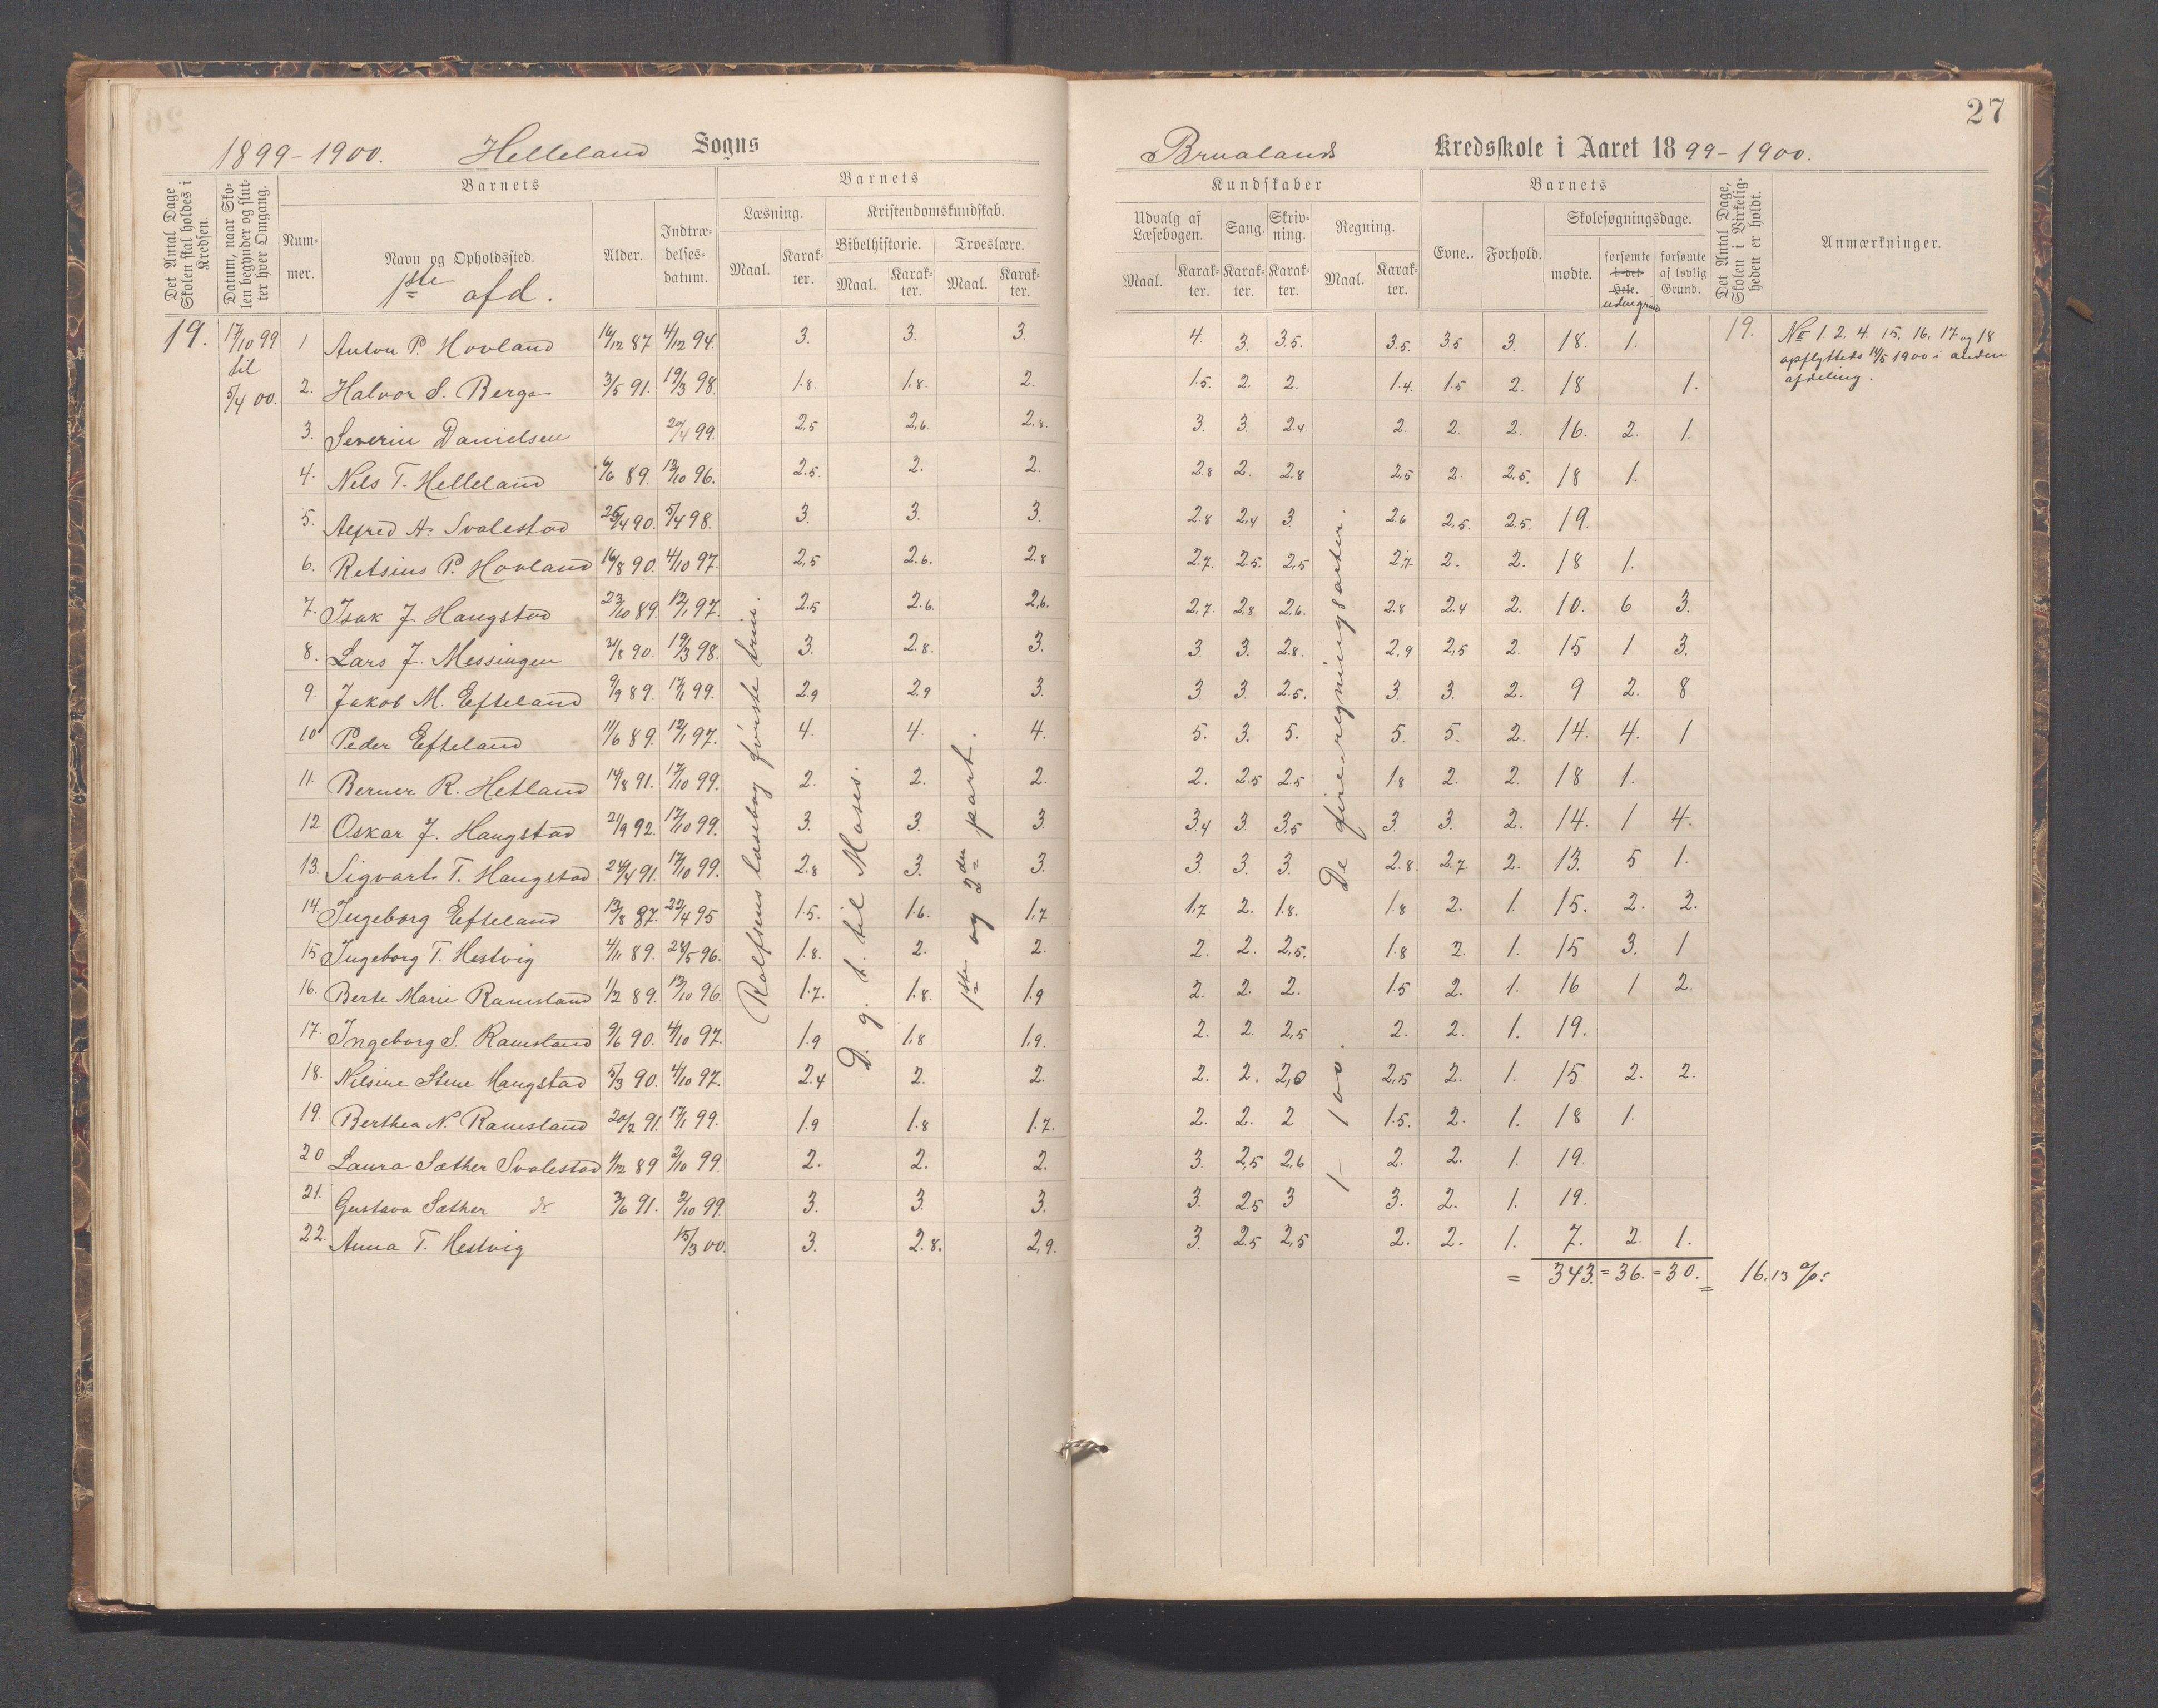 27
1899-1900. Helleland Sogns
Brualands Kredsskole i Aaret 1899-1900.
Det Antal Dage Skolen skal holdes i Kredsen.
Datum, naar Skolen begynder og slutter hver Omgang.
Barnets
Nummer.
Navn og Opholdssted.
1ste afd.
Alder.
Indtrædelsesdatum.
Barnets
Læsning.
Maal.
Karakter.
Kristendomskundskab.
Bibelhistorie.
Maal.
Karakter.
Troeslære.
Maal.
Karakter.
Kundskaber
Udvalg af Læsebogen.
Maal.
Karakter.
Sang.
Karakter.
Skrivning.
Karakter.
Regning.
Maal.
Karakter.
Barnets
Evne.
Forhold.
Skolesøgningsdage.
mødte.
forsømte i det Hele. uden grund
forsømte af lovlig Grund.
Det Antal Dage, Skolen i Virkeligheden er holdt.
Anmærkninger.
19. 17/10 99 til 5/4 00.
1 Anton P. Hovland 16/12 87 4/12 94. 3. 3. 3. 4. 3. 3.5. 3.5. 3.5 3. 18. 1. 19.
2. Halvor S. Berge 3/5 91. 19/3 98. 1.8. 1.8. 2. 1.5. 2. 2. 1.4. 1.5 2. 18 1.
3. Severin Danielsen 20/4 99. 2,5 2,6. 2,8. 3. 3. 2.4. 2. 2. 2. 16. 2. 1.
4. Nils T. Helleland 6/6 89. 13/10 96. 2.5. 2. 2. 2.8 2. 2.8 2,5 2. 2,5. 18 1.
5. Alfred A. Svalestad 26/4 90. 5/4 98. 3. 3. 3. 2.8 2,4 3. 2.6 2,5. 2.5. 19.
6. Retsius P. Hovland 16/8 90. 4/10 97. 2,5 2.6. 2.8 2.7. 2.5. 2,5 2,7. 2. 2. 18 1.
7. Isak J. Haugstad 23/10 89. 12/1 97. 2.5 2.6. 2,6. 2,7. 2,8 2,6. 2.8 2.4 2. 10. 6 3.
8. Lars J. Messingen 21/8 90. 19/3 98. 3. 2.8. 3. 3. 3. 2.8. 2.9 2,5 2. 15 1 3.
9. Jakob M. Efteland 9/9 89. 17/1 99. 2.9 2.9 3. 3. 3. 2.5. 3. 3. 2. 9 2. 8
10 Peder Efteland 11/6 89. 12/1 97. 4. 4. 4. 5. 3. 5. 5. 5. 2. 14. 4. 1
11. Berner R. Hetland 14/8 91. 17/10 99. 2. 2. 2. 2. 2.5 2.5 1.8 2. 2. 18 1.
12 Oskar J. Haugstad 21/9 92. 17/10 99. 3. 3. 3. 3.4 3. 3.5 3. 3. 2. 14. 1 4.
13. Sigvart T. Haugstad 24/4 91. 17/10 99. 2.8 3. 3. 3. 3. 3. 2.8. 2.7. 2. 13. 5 1.
14. Ingeborg Efteland 13/8 87. 22/4 95 1.5. 1.6. 1,7 1,7 2. 1.8. 1.8 2. 1. 15. 2. 2.
15 Ingeborg T. Hestvig 4/11 89. 28/5 96. 1.8. 2. 2. 2. 2. 2,5. 1.8 2. 1. 15 3. 1
16. Berte Marie Ramsland 1/2 89. 13/10 96. 1.7. 1.8. 1.9 2. 2. 2. 1.5 2. 1. 16 1 2.
17. Ingeborg S. Ramsland 9/6 90. 4/10 97. 1.9 1,8 1,9. 2. 2. 2,5 2. 2. 1. 19.
18. Nilsine Stene Haugstad 5/3 90. 4/10 97. 2.4 2. 2. 2. 2. 2,0 2,5 2. 1. 15 2. 2.
19. Berthea N. Ramsland 20/2 91. 17/1 99. 1.9 1.8 1.7. 2. 2. 2 1.5. 2. 1. 18 1.
20 Laura Sæther Svalestad 1/12 89 2/10 99. 2. 2. 2. 3. 2,5 2,6 2. 2. 1. 19.
21. Gustava Sæther do 3/6 91. 2/10 99. 3. 3. 3. 3. 2.5 3 3. 2. 1. 19.
22. Anna T. Hestvig 15/3 00. 3. 2.8. 2,9. 3. 2.5 2,5 2. 2. 1. 7. 2. 1.
= 343. = 36. = 30. = 16.13 %
Rolfsens læsebog første trin.
D. g. t. til Moses.
1ste og 2den part.
De fire regningsarter. 1-100.
No 1. 2. 4. 15, 16, 17 og 18
opflyttede 14/5 1900 i anden
afdeling.